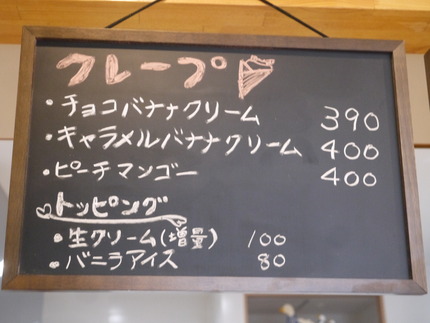 クレープ
・チョコバナナクリーム 390
・キャラメルバナナクリーム 400
・ピーチマンゴー 400
トッピング
・生クリーム(増量) 100
・バニラアイス 80